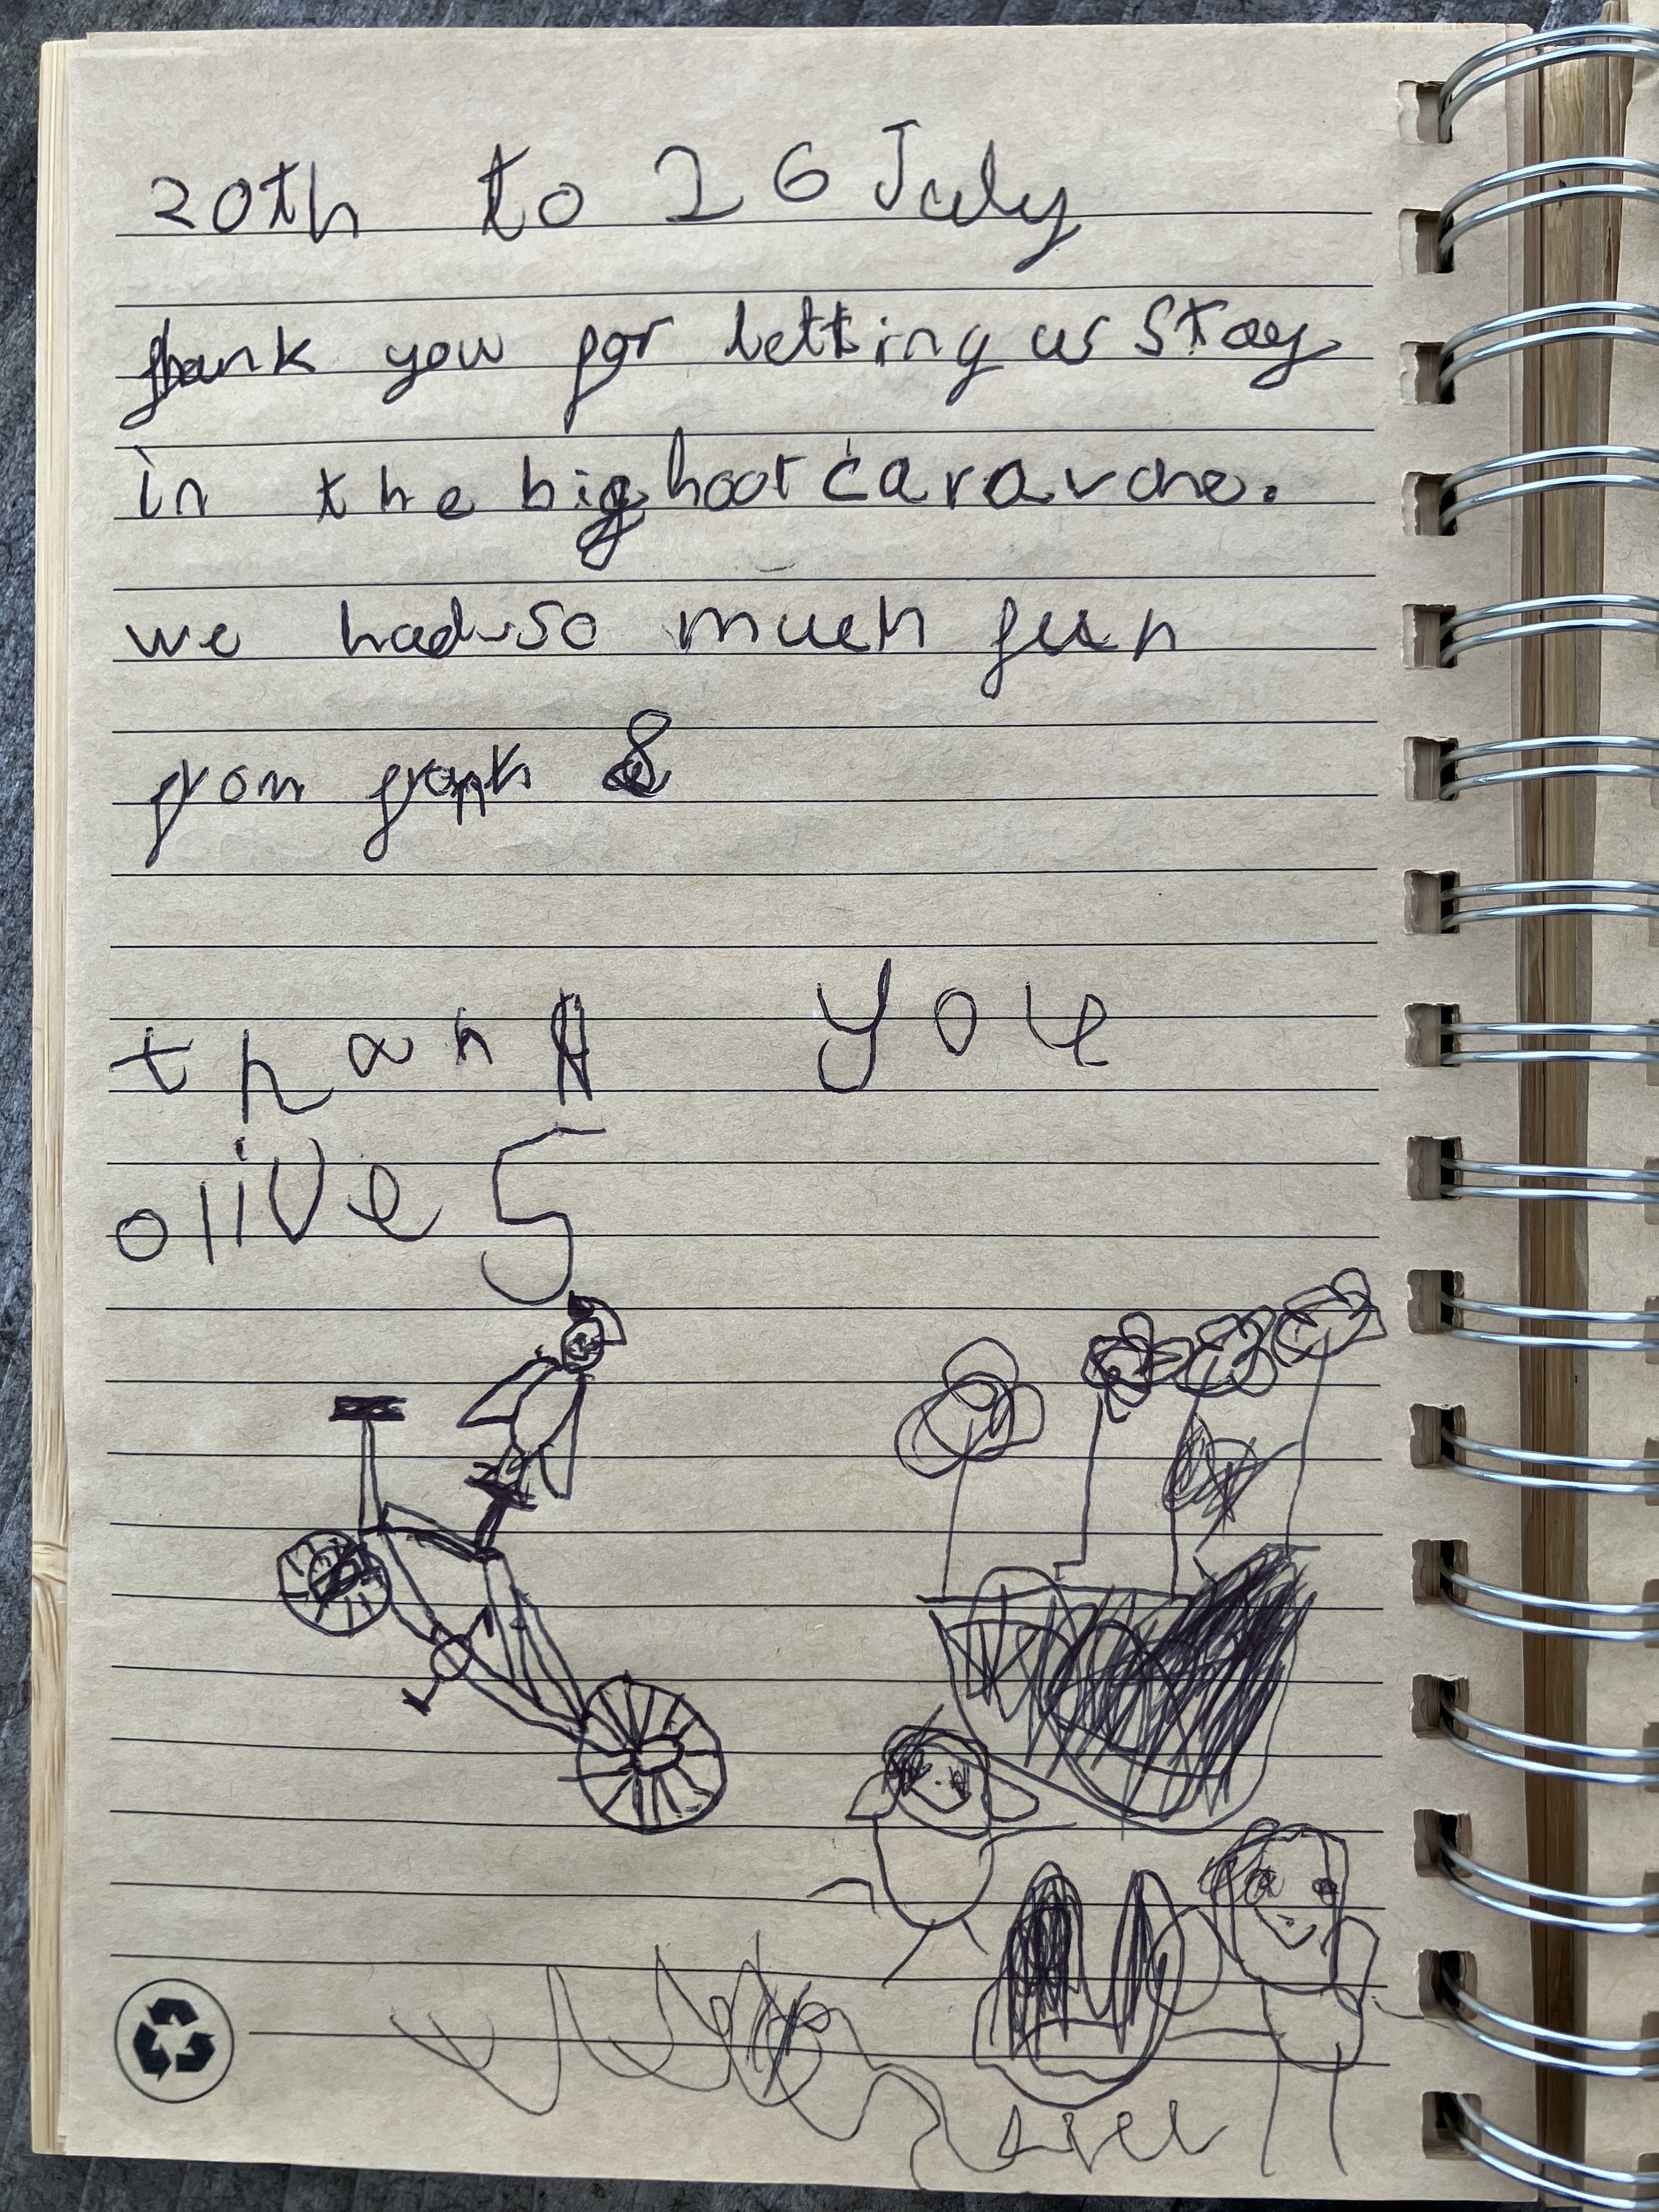 20th to 26 July
thank you for letting us stay
in the big hoot caravane.
we had so much fun
from 8
thank you
olive 5